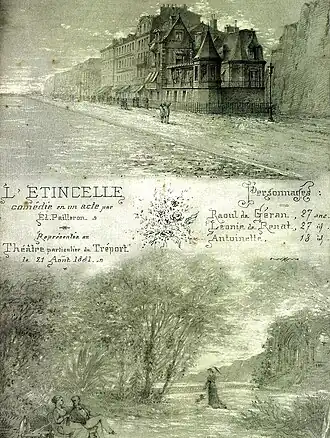 L'ETINCELLE
comédie en un acte par
Ed. Pailleron.
Représentée au
Théâtre particulier du Tréport
le 21 Août 1881.
Personnages:
Raoul de Géran, 27 ans
Léonie de Renat, 27 id
Antoinette, 18 id